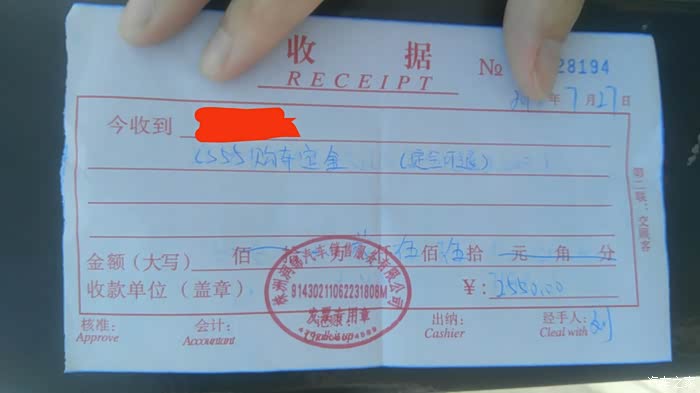 收 据
RECEIPT
№ 28194
年 7 月 27 日
今收到
CS55购车定金 (定金可退)
第二联:交顾客
金额(大写) 佰 伍佰伍拾 元 角 分
收款单位(盖章) ¥: 2550.00
汽车销售服务有限公司
91430211062231808M
发票专用章
核准: 会计: 出纳: 经手人: 刘
Approve Accountant Cashier Cleal with